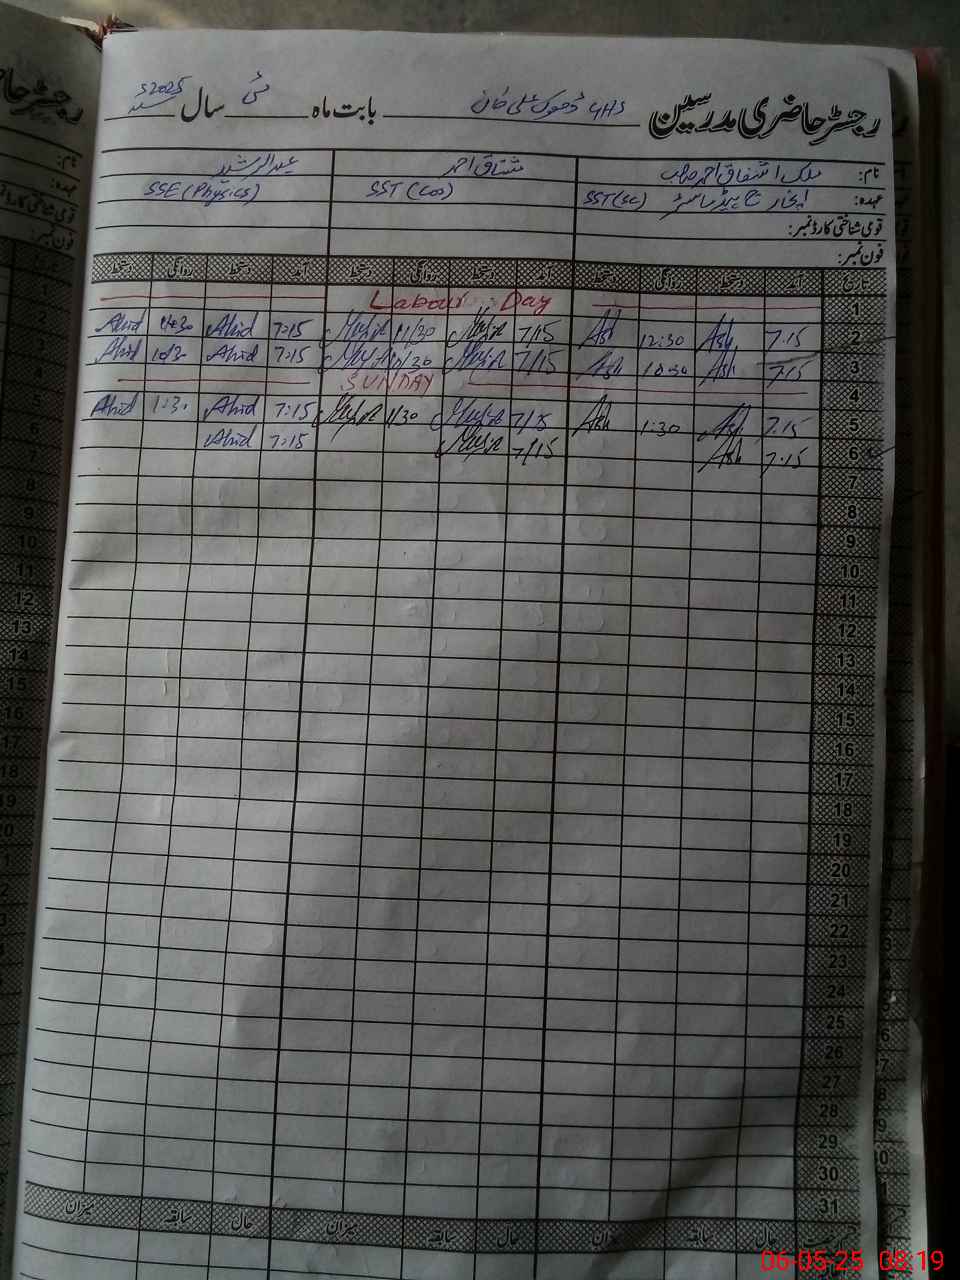 رجسٹر حاضری مدرسین GHS ڈھوک علی خان بابت ماہ مئی سال 2025
نام: ملک اشفاق احمد صاحب مشتاق احمد عبدالرشید
عہدہ: انچارج ہیڈ ماسٹر SST(SC) SST (Co) SSE (Physics)
قومی شناختی کارڈ نمبر:
فون نمبر:
تاریخ آمد دستخط روانگی دستخط آمد دستخط روانگی دستخط آمد دستخط روانگی دستخط
1 Labour Day
2 7.15 Ash 12:30 Ash 7/15 11/30 7:15 Abid Abid
3 7.15 Ash 10:30 Ash 7/15 10/30 7:15 Abid 10:30 Abid
4 SUNDAY
5 7.15 Ash 1:30 Ash 7/15 1/30 7:15 Abid 1:30 Abid
6 7.15 Ash 7/15 7:15 Abid
7
8
9
10
11
12
13
14
15
16
17
18
19
20
21
22
23
24
25
26
27
28
29
30
31
حال سابقہ میزان حال سابقہ میزان حال سابقہ میزان
06-05-25 08:19